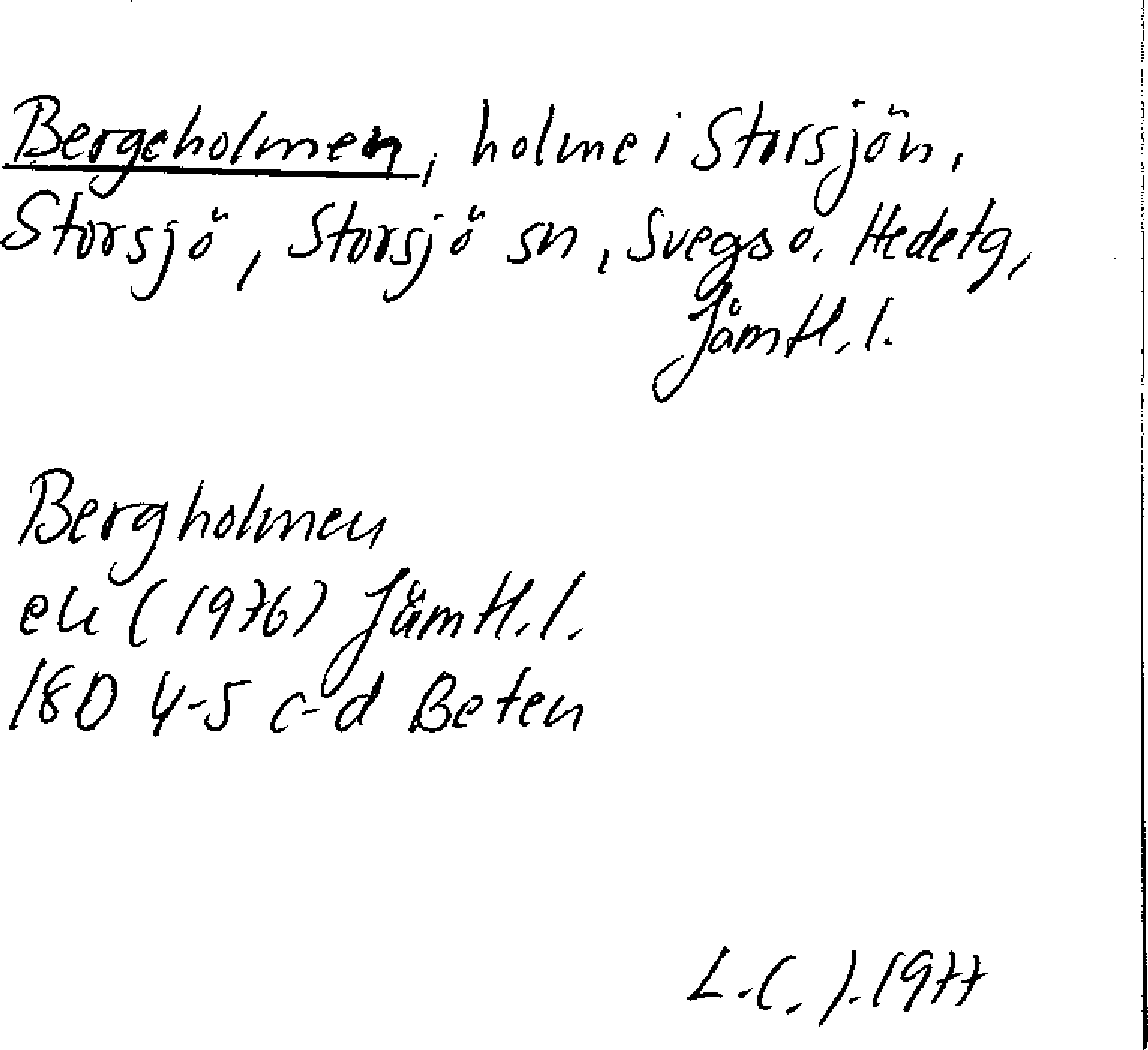 Bergeholmen, holme i Storsjön,
Storsjö, Storsjö sn, Svegs o. Hedetg,
Jämtl. l.
Bergholmen
ek (1976) Jämtl. l.
18D 4-5 c-d Beten
L.C. J. 1977